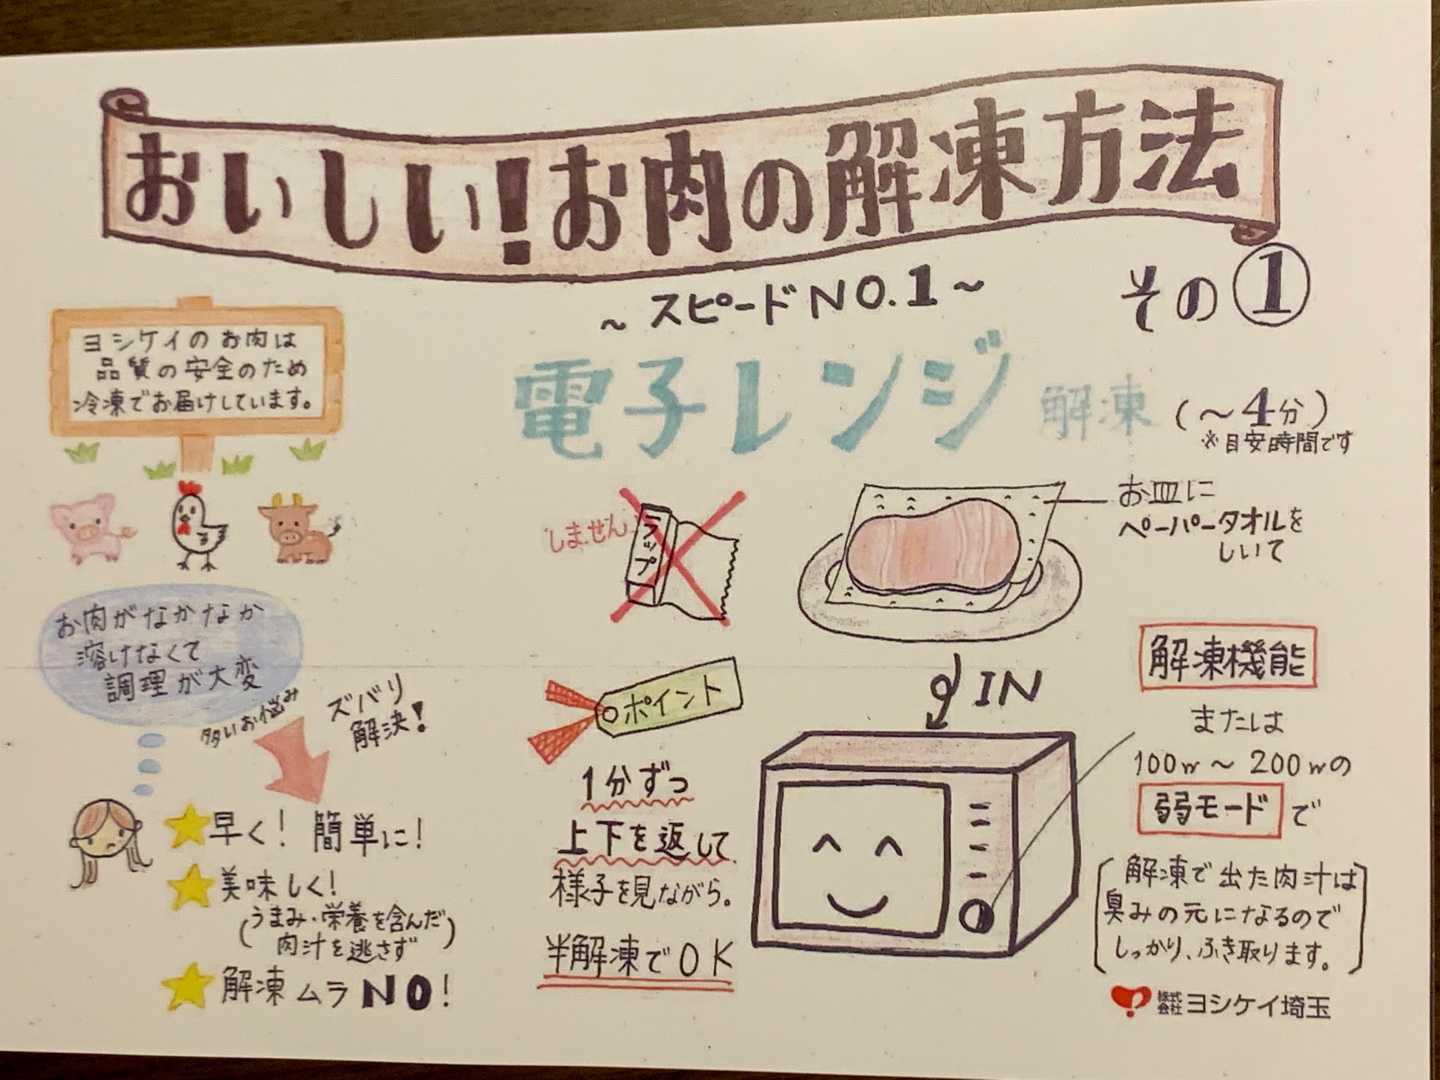 おいしい!お肉の解凍方法
その①
~スピードNO.1~
電子レンジ 解凍 (~4分)
※目安時間です
ヨシケイのお肉は
品質の安全のため
冷凍でお届けしています。
お肉がなかなか
溶けなくて
調理が大変
多いお悩み
ズバリ
解決!
早く! 簡単に!
美味しく!
(うまみ・栄養を含んだ
肉汁を逃さず)
解凍ムラNO!
しません
ラップ
お皿に
ペーパータオルを
しいて
IN
ポイント
1分ずつ
上下を返して
様子を見ながら。
半解凍でOK
解凍機能
または
100w~200wの
弱モードで
解凍で出た肉汁は
臭みの元になるので
しっかり、ふき取ります。
株式会社 ヨシケイ埼玉